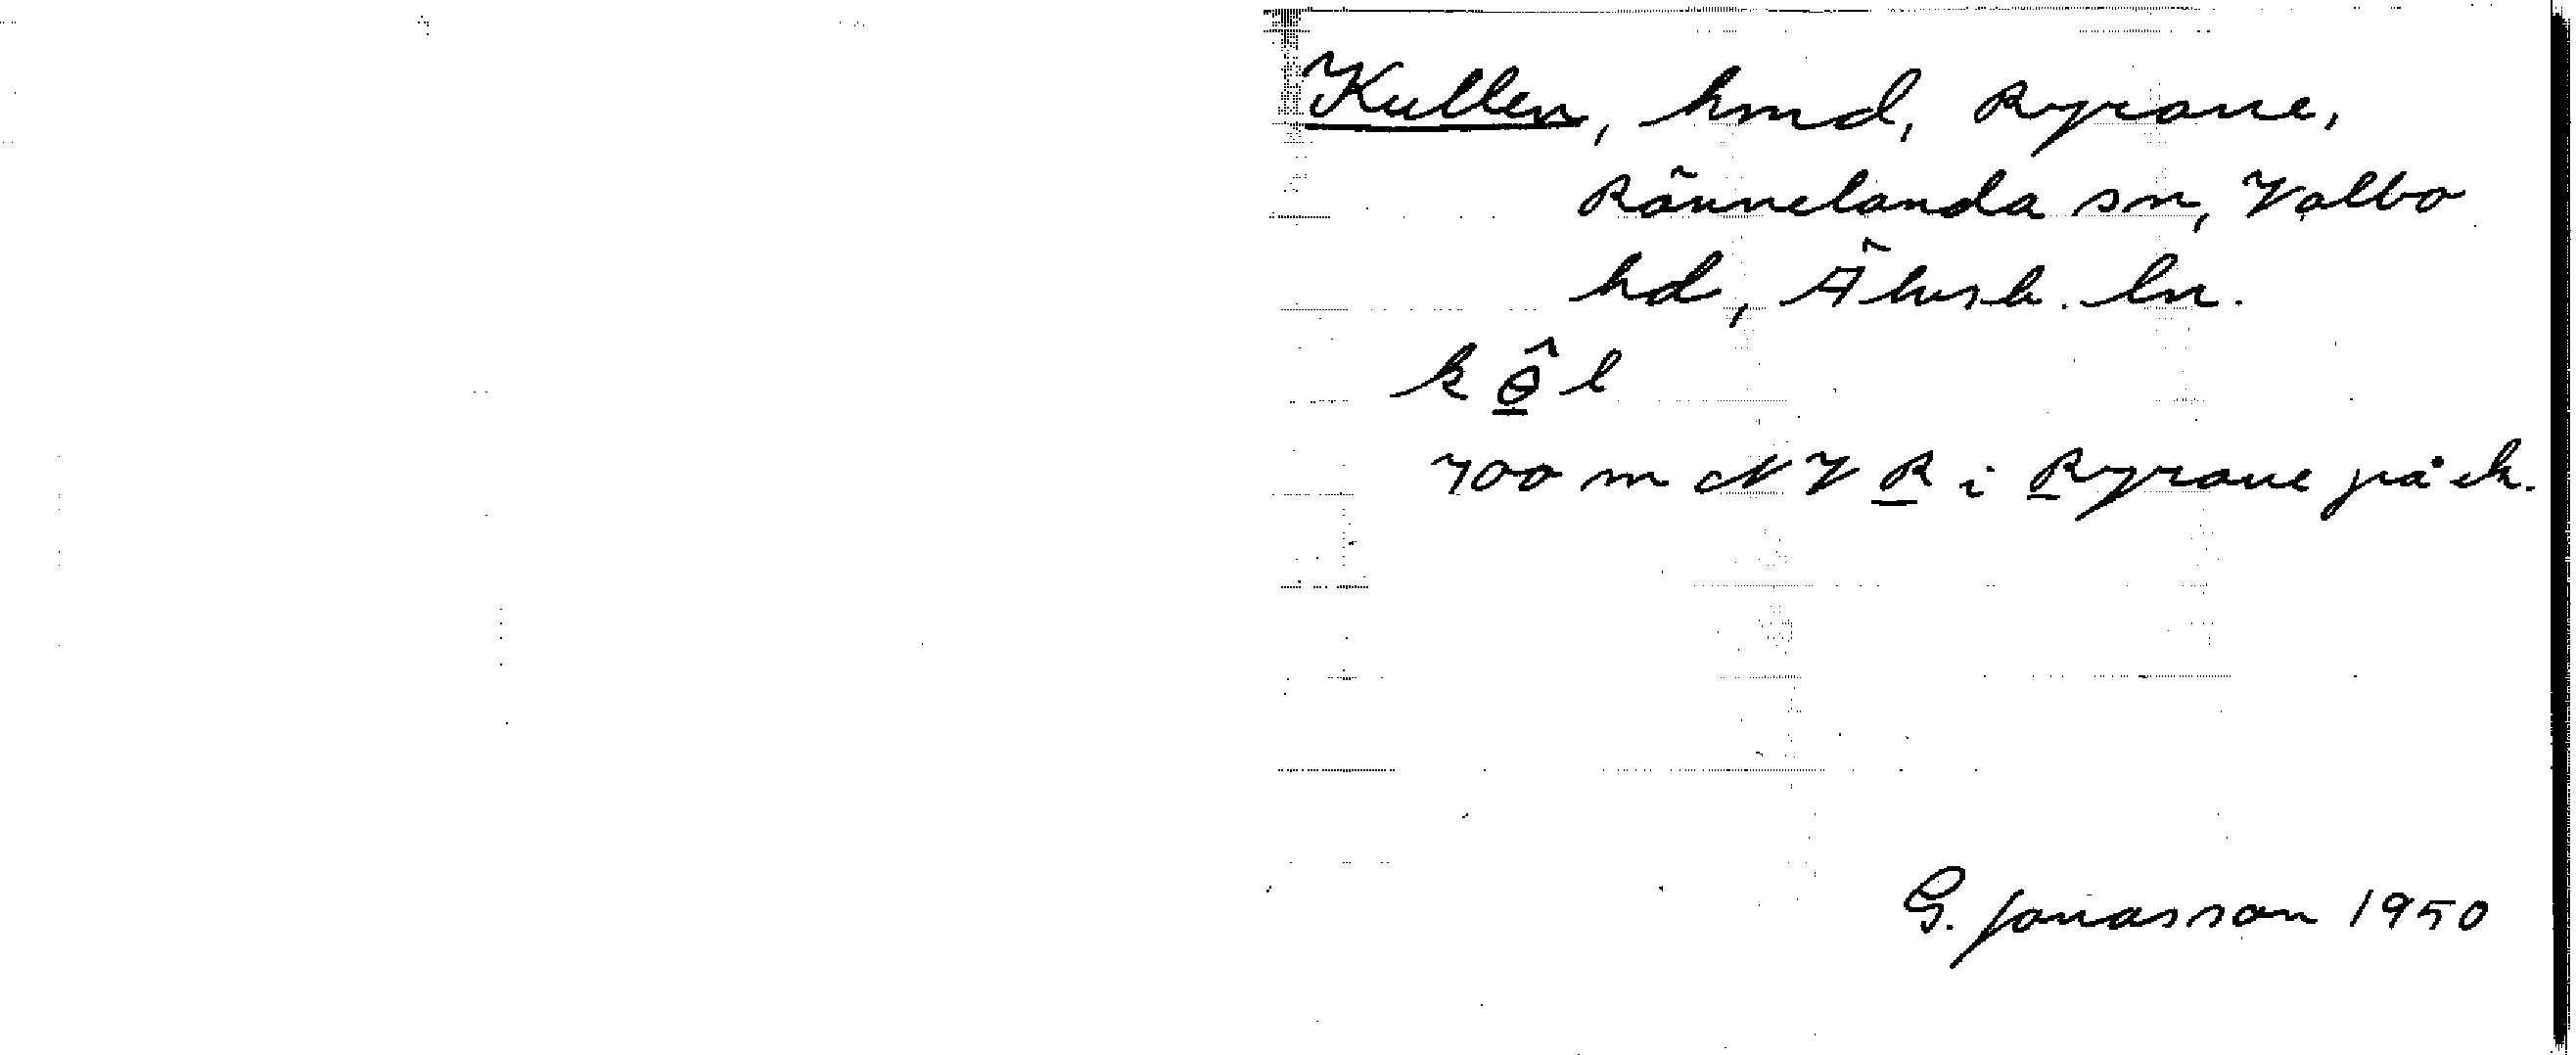 Kullen, hmd, Ryrane,
Rännelanda sn, Valbo
hd, Älvsb. ln.
kô̱l
700 m NV R i Ryrane på ek.
G. Jonasson 1950